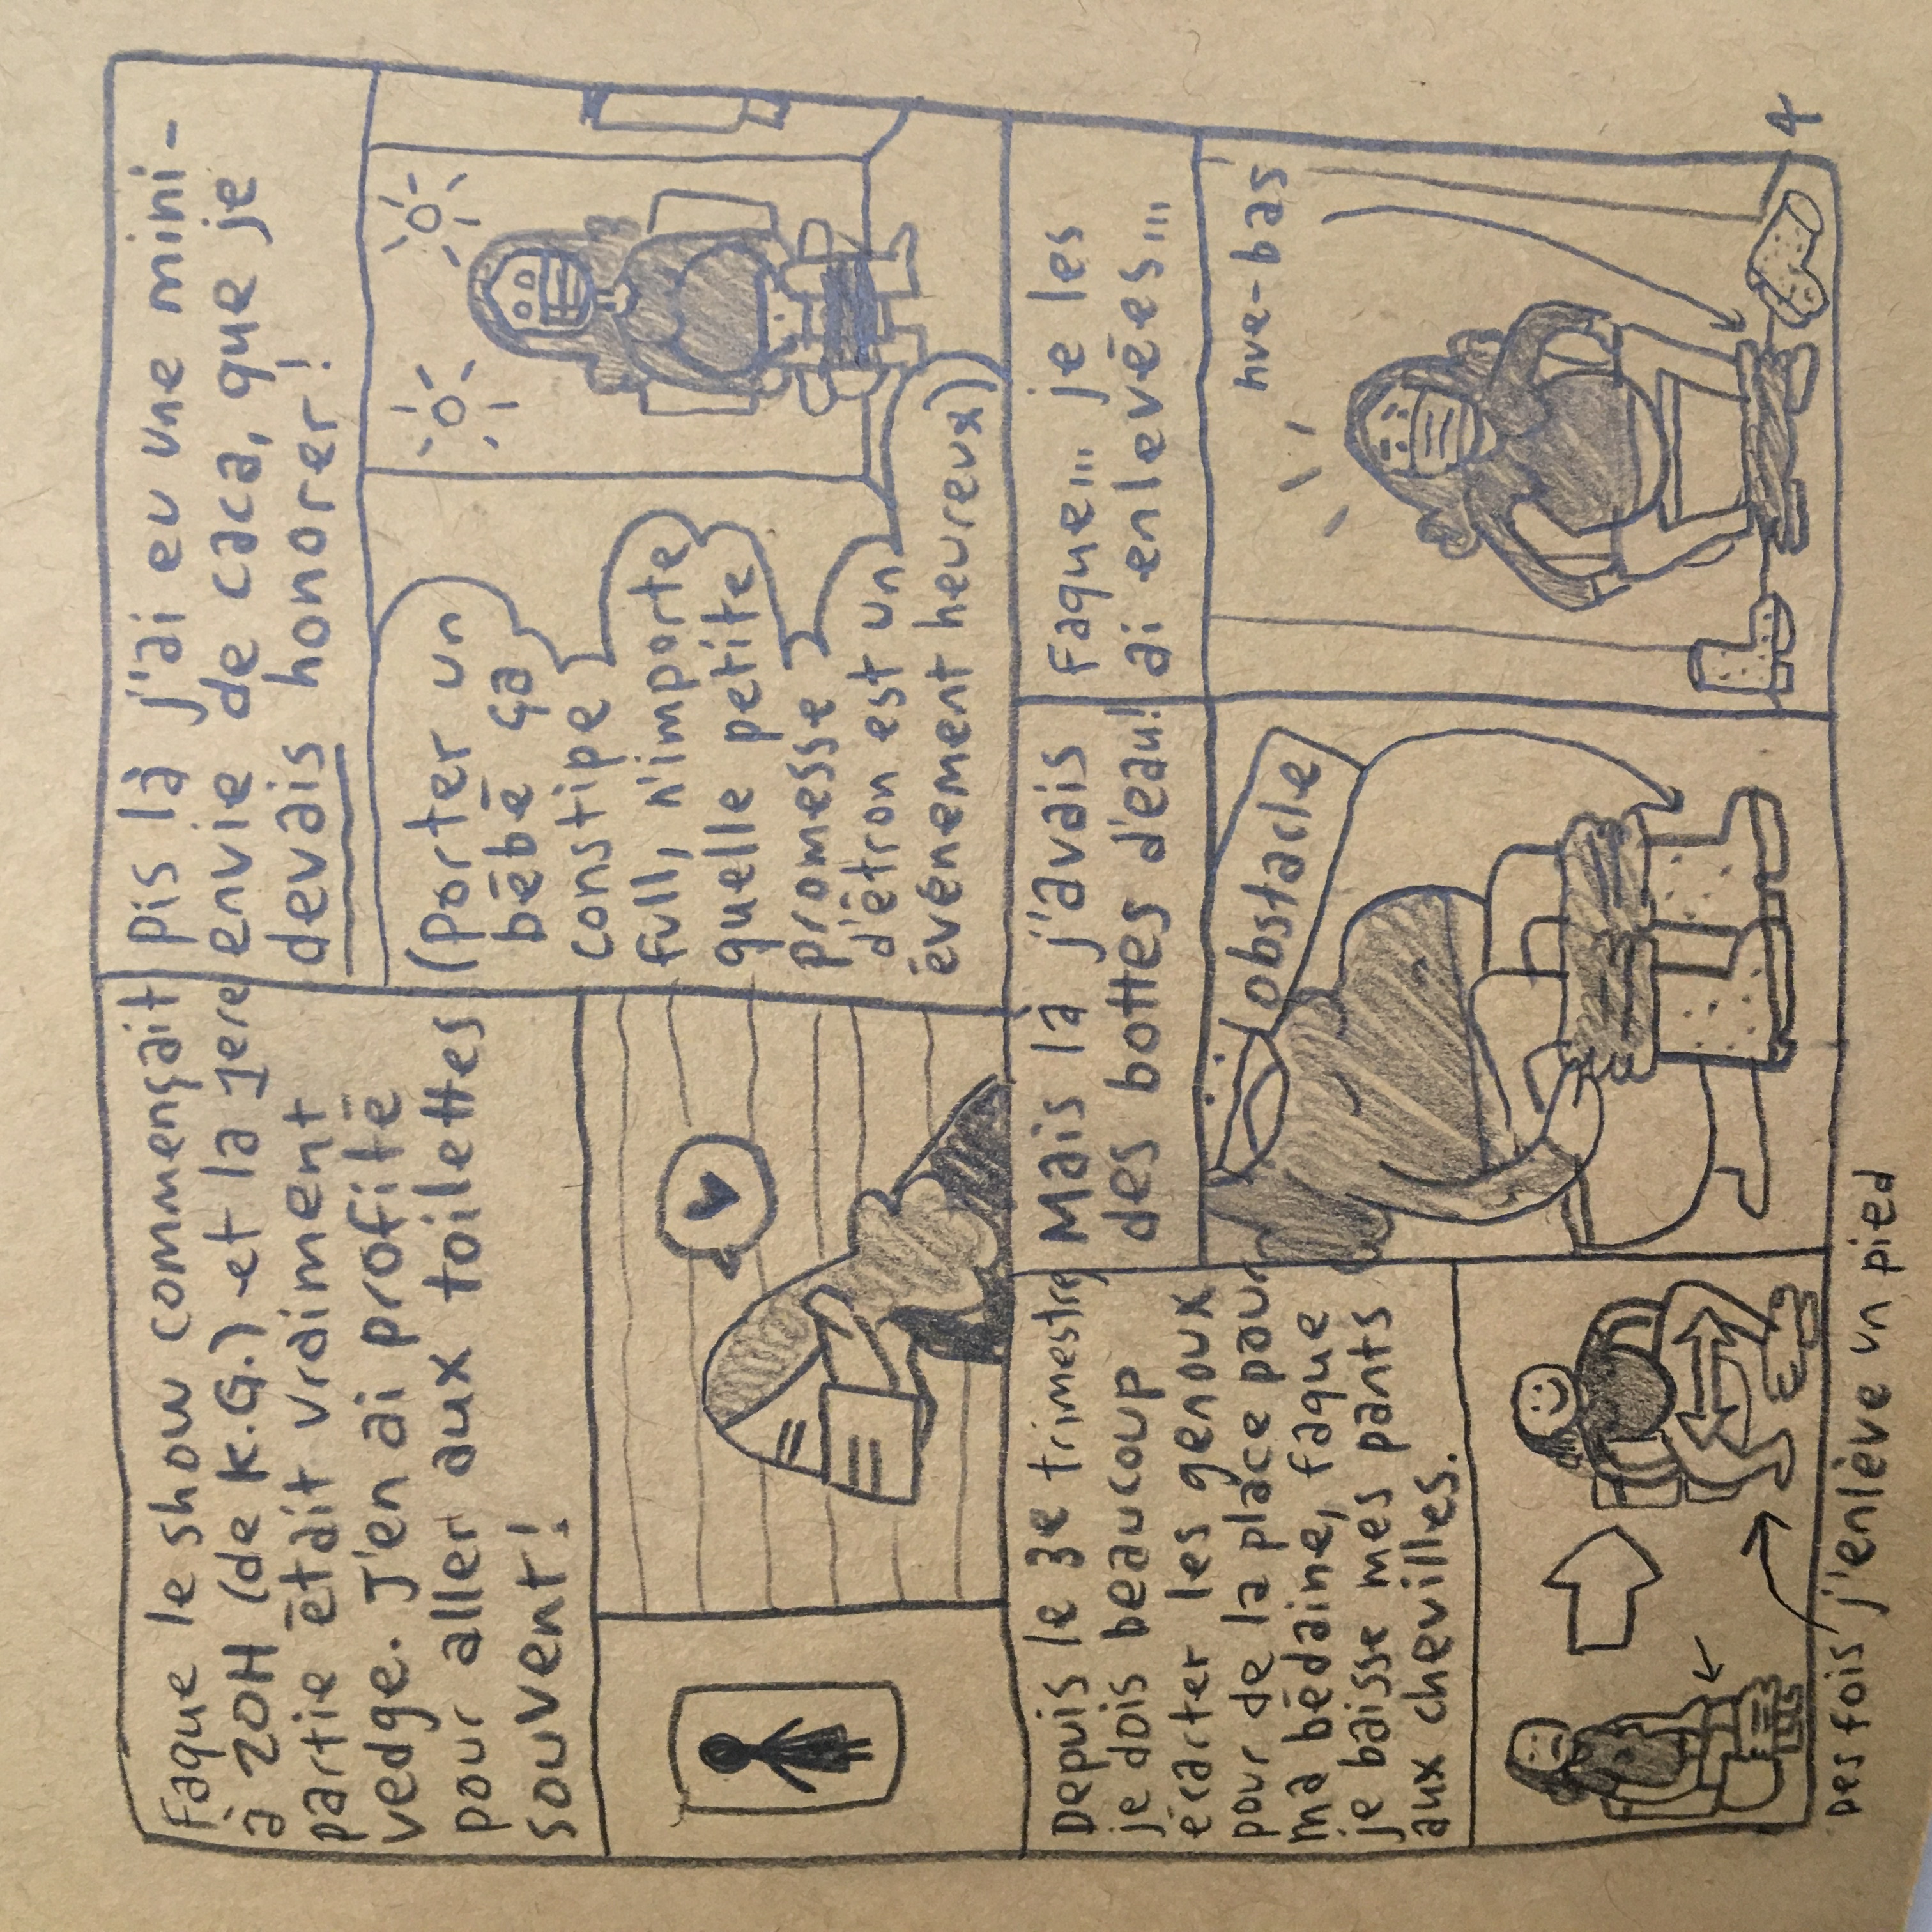 Faque le show commençait
à 20H (de K.G.) et la 1ere
partie était vraiment
vedge. J'en ai profité
pour aller aux toilettes
souvent!
Pis là j'ai eu une mini-
envie de caca, que je
devais honorer!
(Porter un
bébé ça
constipe
full, n'importe
quelle petite
promesse
d'étron est un
évènement heureux)
Depuis le 3e trimestre
je dois beaucoup
écarter les genoux
pour de la place pour
ma bédaine, faque
je baisse mes pants
aux chevilles.
Des fois j'enlève un pied
Mais là j'avais
des bottes d'eau!
obstacle
Faque... je les
ai enlevées...
nue-bas
4